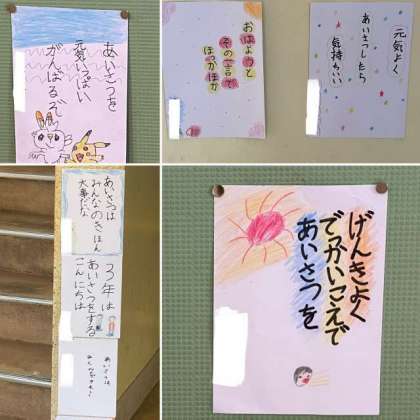 あいさつを
元気いっぱい
がんばるぞ
おはようと
その一言で
ほっかほか
元気よく
あいさつしたら
気持ちいい
あいさつは
みんなのきほん
大事だな
3年は
あいさつをする
こんにちは
あいさつは
げんきよく
でっかいこえで
あいさつを